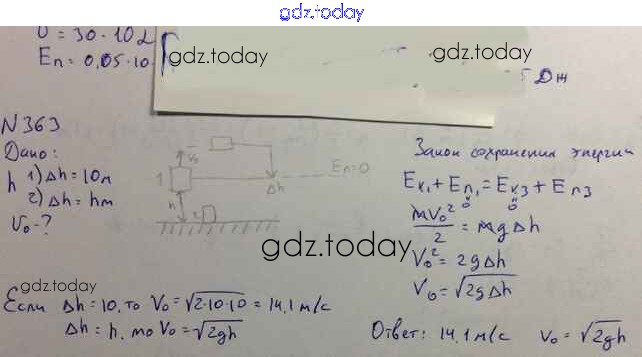 gdz.today
U = 30 · 10
Eп = 0,05 · 10
gdz.today
gdz.today
5 Дж
N 363
Дано:
h 1) Δh = 10м
2) Δh = hм
V₀ - ?
V₀
1
h
Δh
Eп=0
gdz.today
Закон сохранения энергии
Eк₁ + Eп₁ = Eк₃ + Eп₃
0 0 0
mV₀²/2 = mgΔh
V₀² = 2gΔh
V₀ = √2gΔh
gdz.today
Если Δh = 10, то V₀ = √2·10·10 = 14,1 м/с
Δh = h, то V₀ = √2gh
Ответ: 14,1 м/с V₀ = √2gh
gdz.today